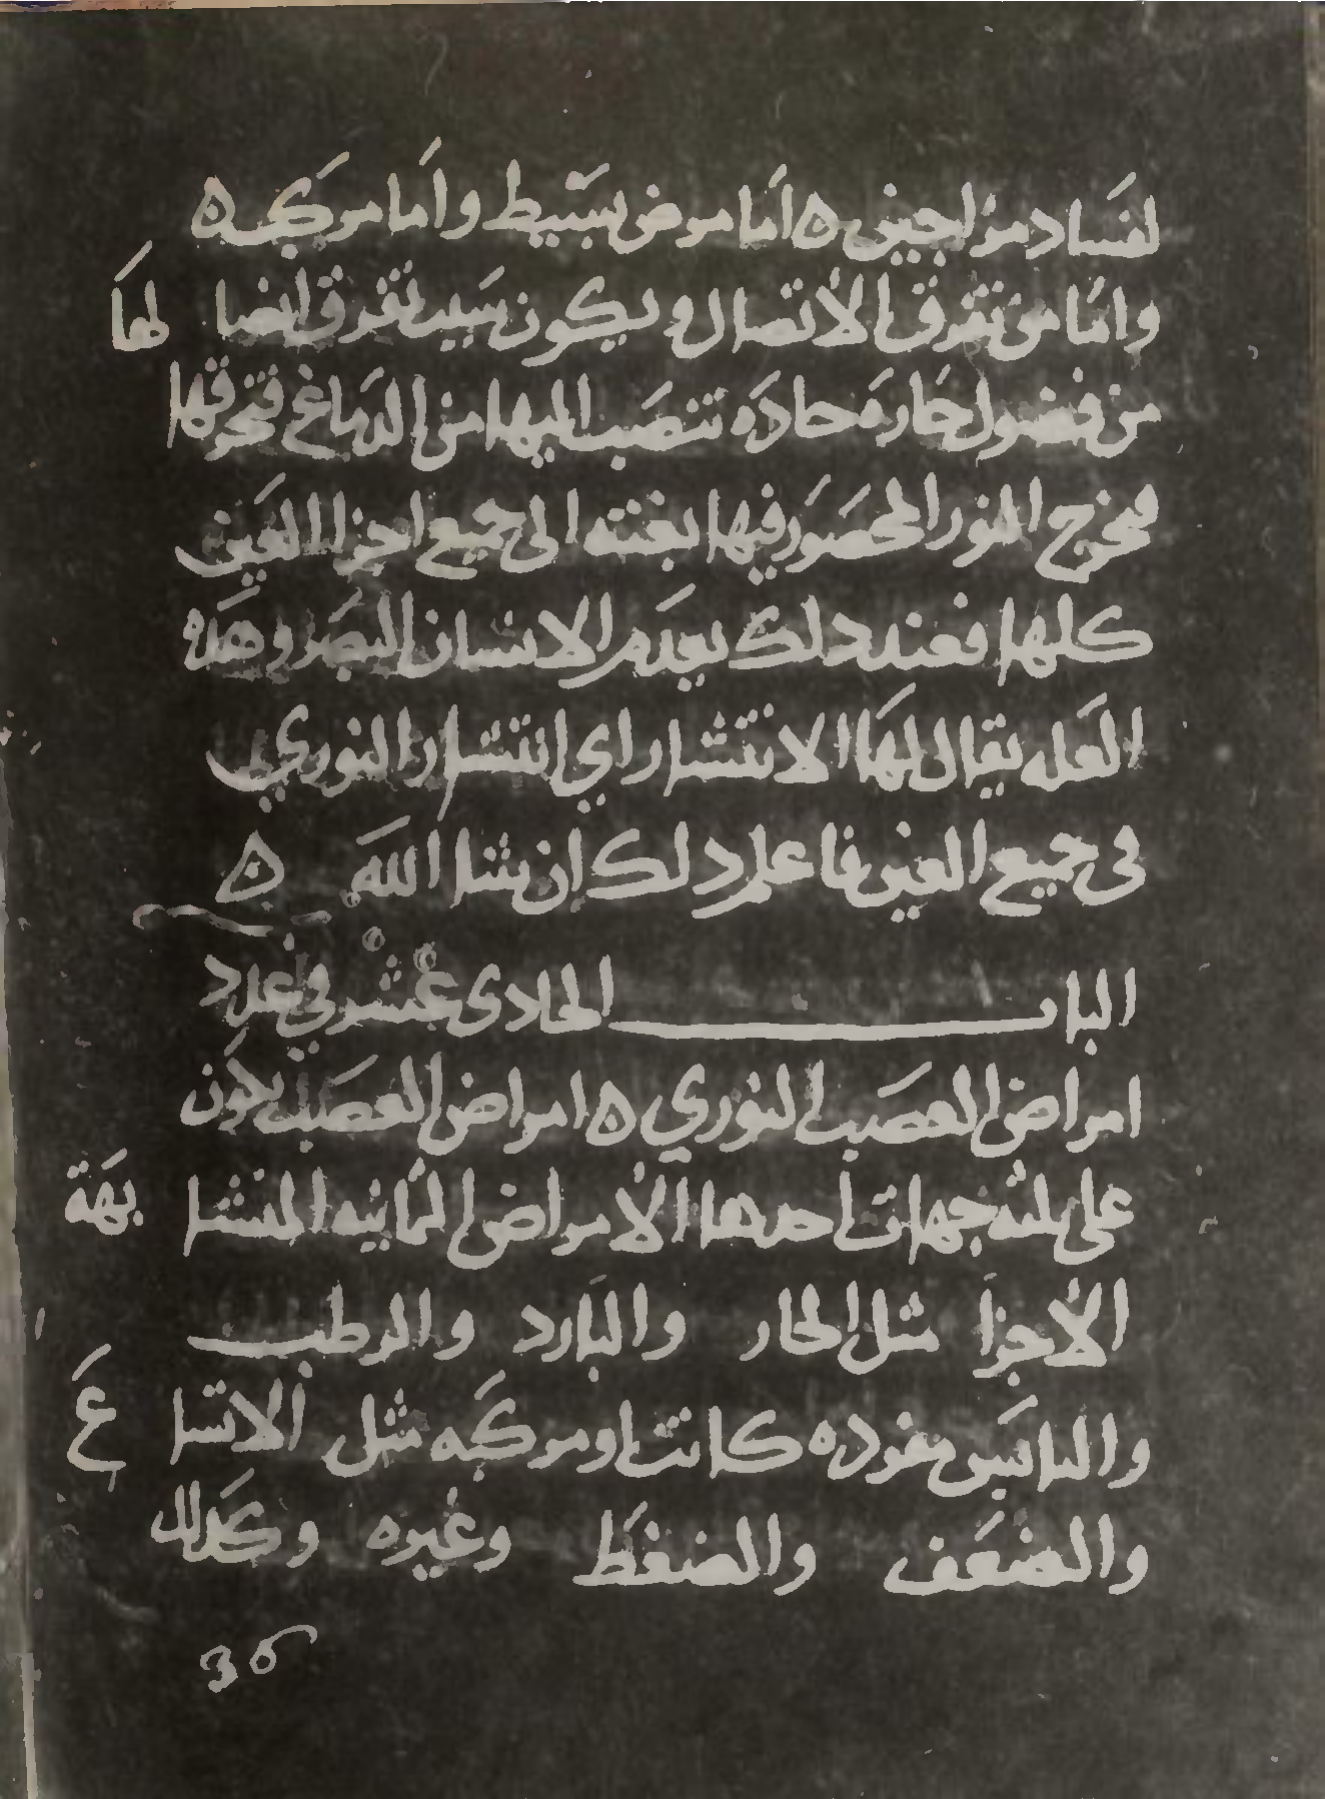 لفساد مزاجين ه اما مرض بسيط واما مركب ه
واما من تفرق الاتصال ويكون سبب تفرق ايضا لها
من فضول حاره حاده تنصب اليها من الدماغ فتحرقها
فيخرج النور المحصور فيها بغته الى جميع اجزا العين
كلها فعند دلك يعدم الانسان البصر وهده
العله يقال لها الانتشار اي انتشار النوري
فى جميع العين فاعلم دلك ان شا الله ه
الباب الحادى عشر في عدد
امراض العصب النوري ه امراض العصب يكون
على ثلثه جهات احدها الامراض الثمانيه المتشا بهة
الاجزا مثل الحار والبارد والرطب
واليابس مفرده كانت او مركبه مثل الاتسا ع
والضعف والضغط وغيره وكدلك